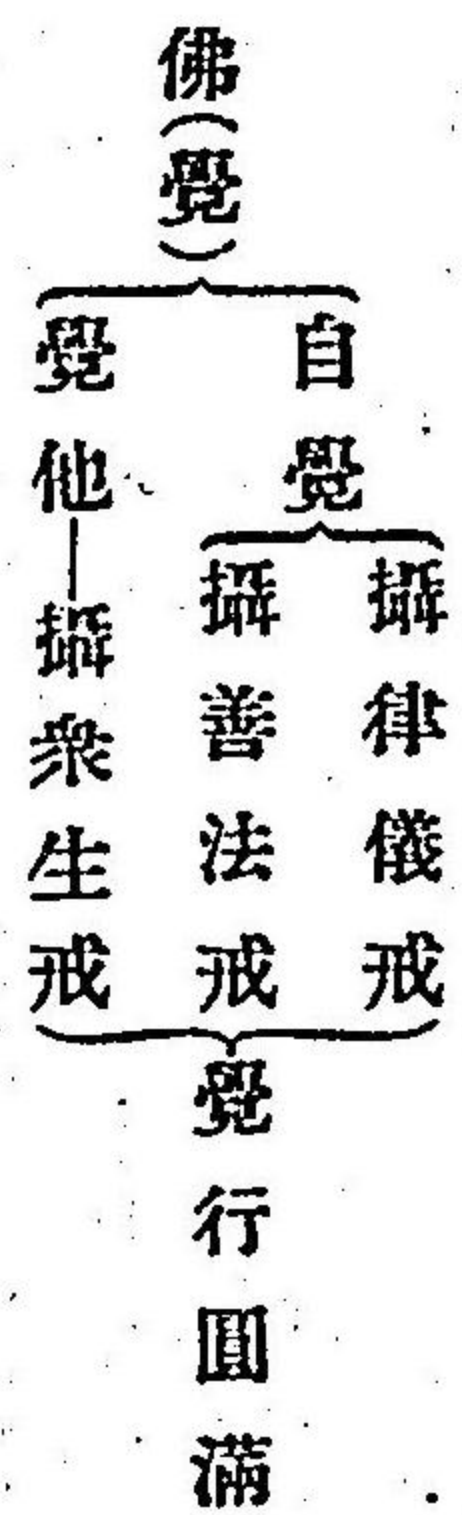 佛(覺)
自覺
攝律儀戒
攝善法戒
覺他—攝衆生戒
覺行圓滿